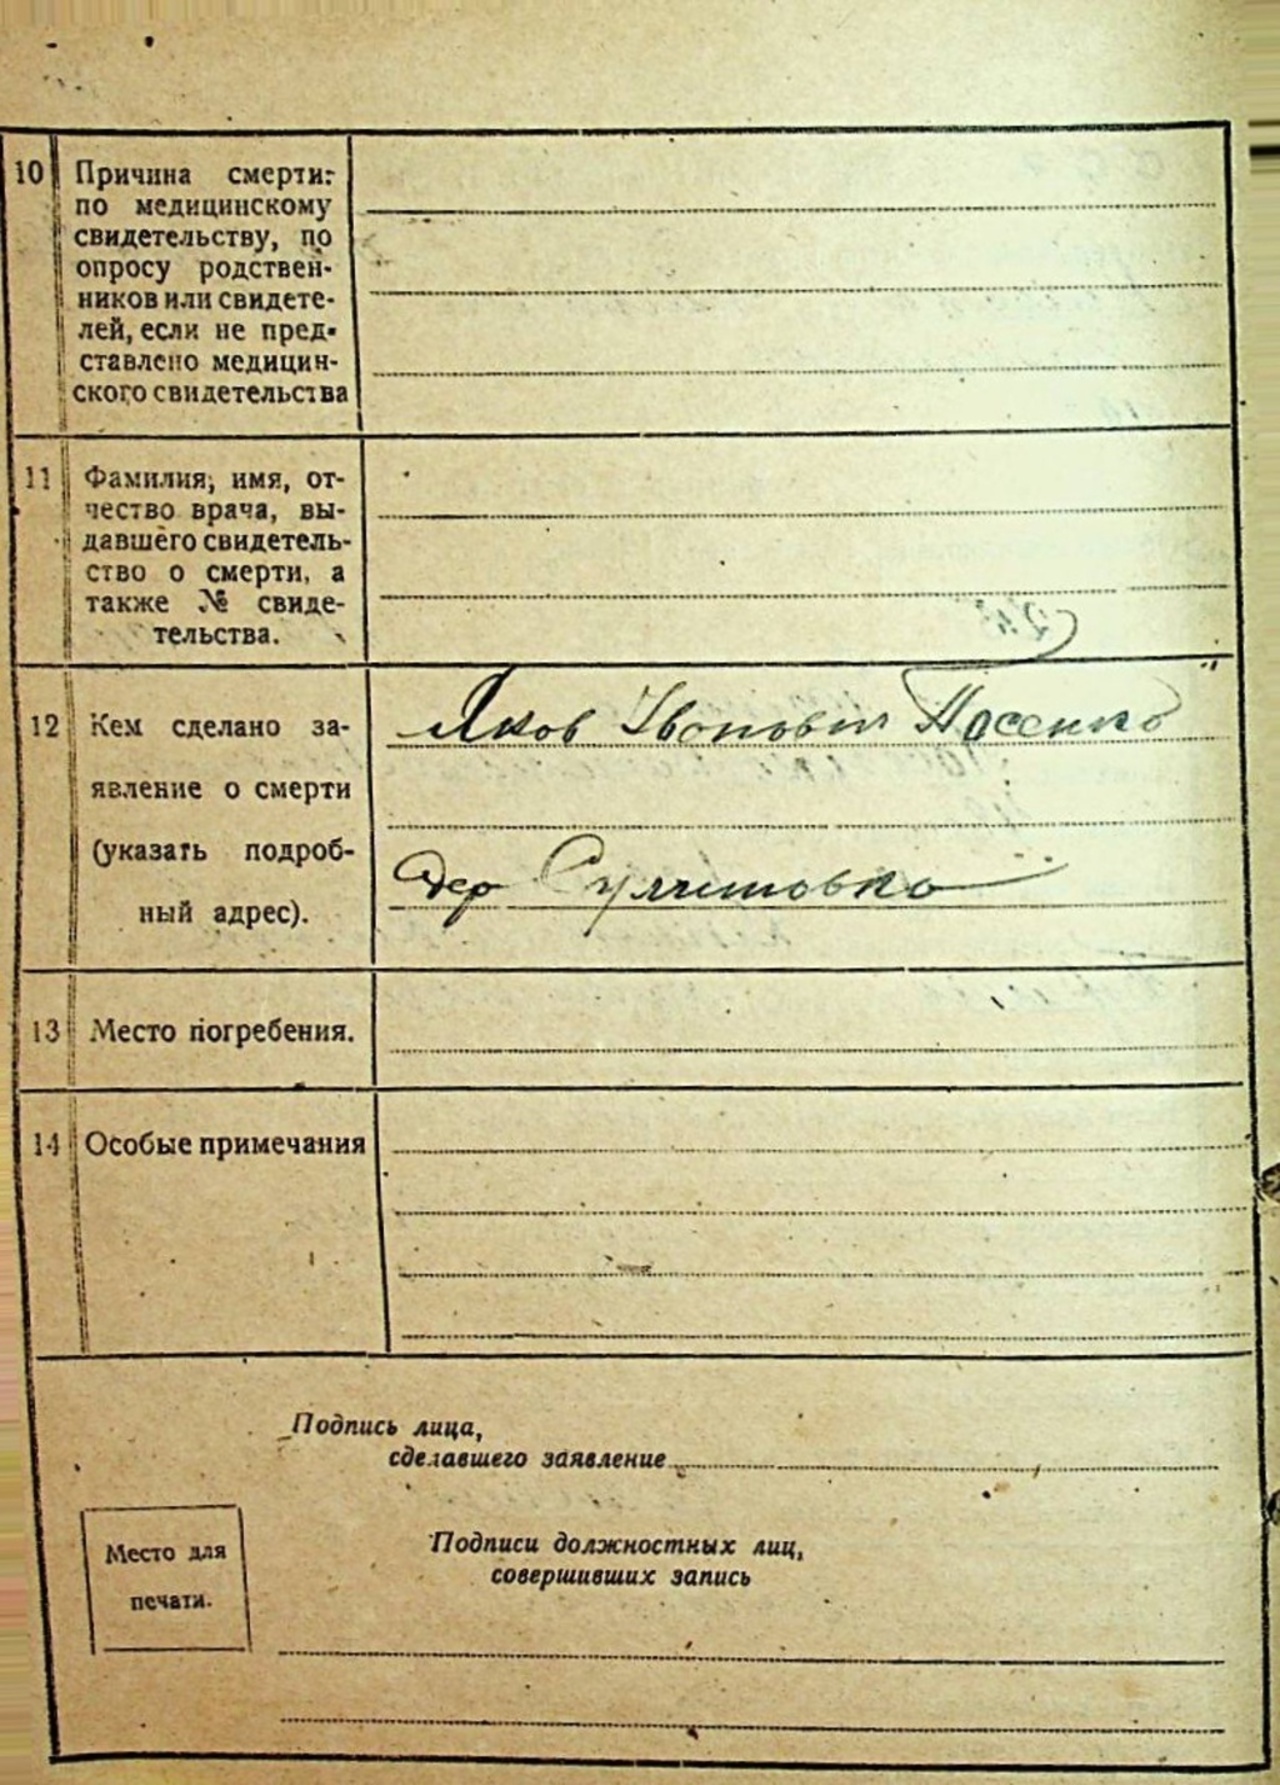 10 Причина смерти:
по медицинскому
свидетельству, по
опросу родствен-
ников или свидете-
лей, если не пред-
ставлено медицин-
ского свидетельства
11 Фамилия, имя, от-
чество врача, вы-
давшего свидетель-
ство о смерти, а
также № свиде-
тельства.
12 Кем сделано за-
явление о смерти
(указать подроб-
ный адрес).
Яков Иванович
дер
13 Место погребения.
14 Особые примечания
Подпись лица,
сделавшего заявление
Место для
печати.
Подписи должностных лиц,
совершивших запись